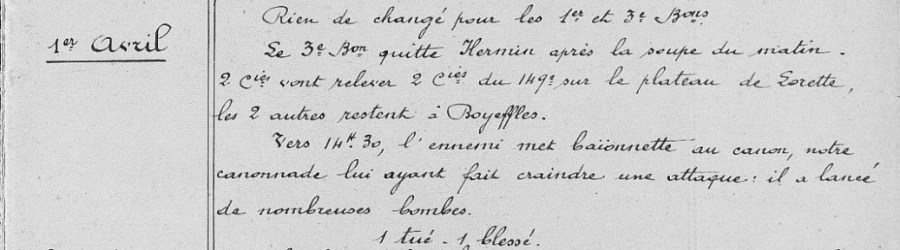 Rien de changé pour les 1er et 3e Bons
1er Avril
Le 3e Bon quitte Hermin après la soupe du matin.
2 Cies vont relever 2 Cies du 149e sur le plateau de Lorette,
les 2 autres restent à Boyeffles.
Vers 14H.30, l'ennemi met baïonnette au canon, notre
canonnade lui ayant fait craindre une attaque : il a lancé
de nombreuses bombes.
1 tué - 1 blessé.